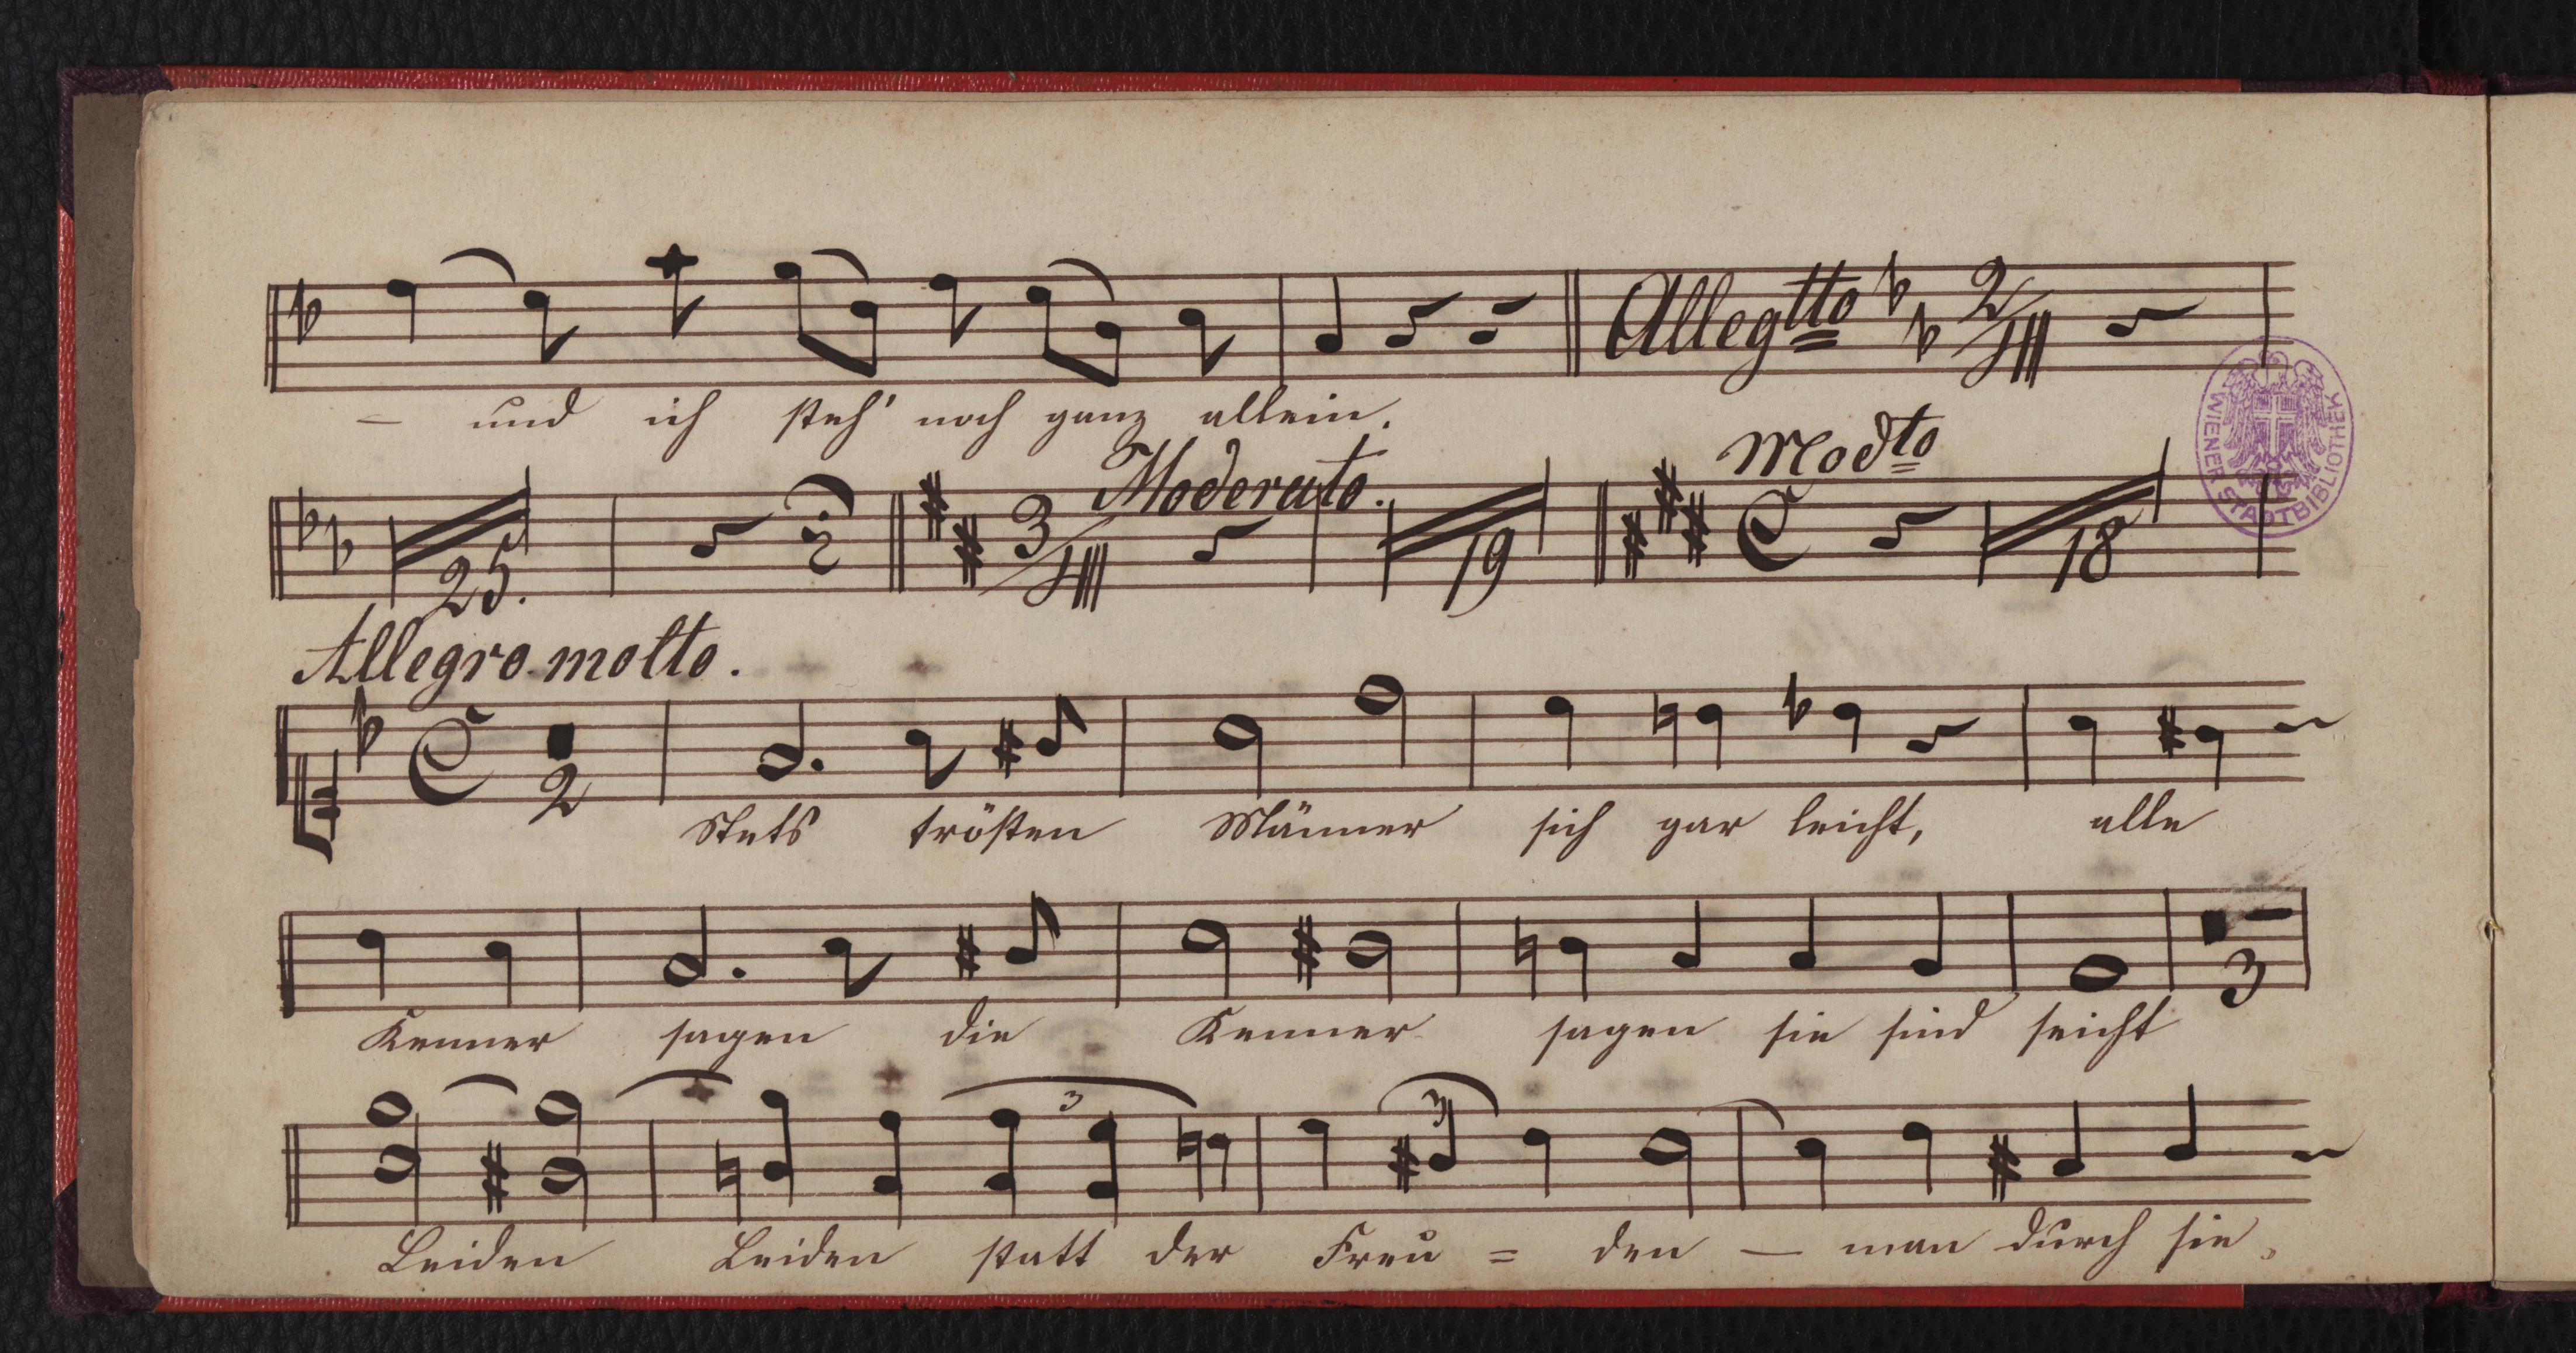 Allegtto 2/4
— und ich steh' noch ganz allein.
Moderato. Modto
25. 3/4 19 C 18
WIENER STADTBIBLIOTHEK
Allegro molto.
C 2
Stets trösten Männer sich gar leicht, alle
3
Kenner sagen die Kenner sagen sie sind seicht
3 3
Leiden Leiden statt der Freu = den — man durch sie